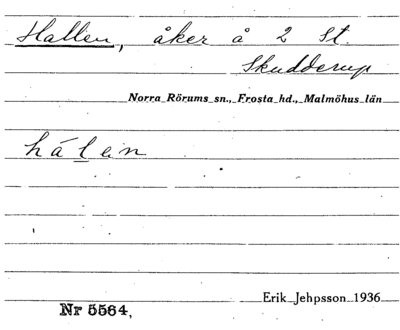 Hallen, åker å 2 st.
Skudderup
Norra Rörums sn., Frosta hd., Malmöhus län
hálein
Erik Jehpsson 1936
Nr 5564,